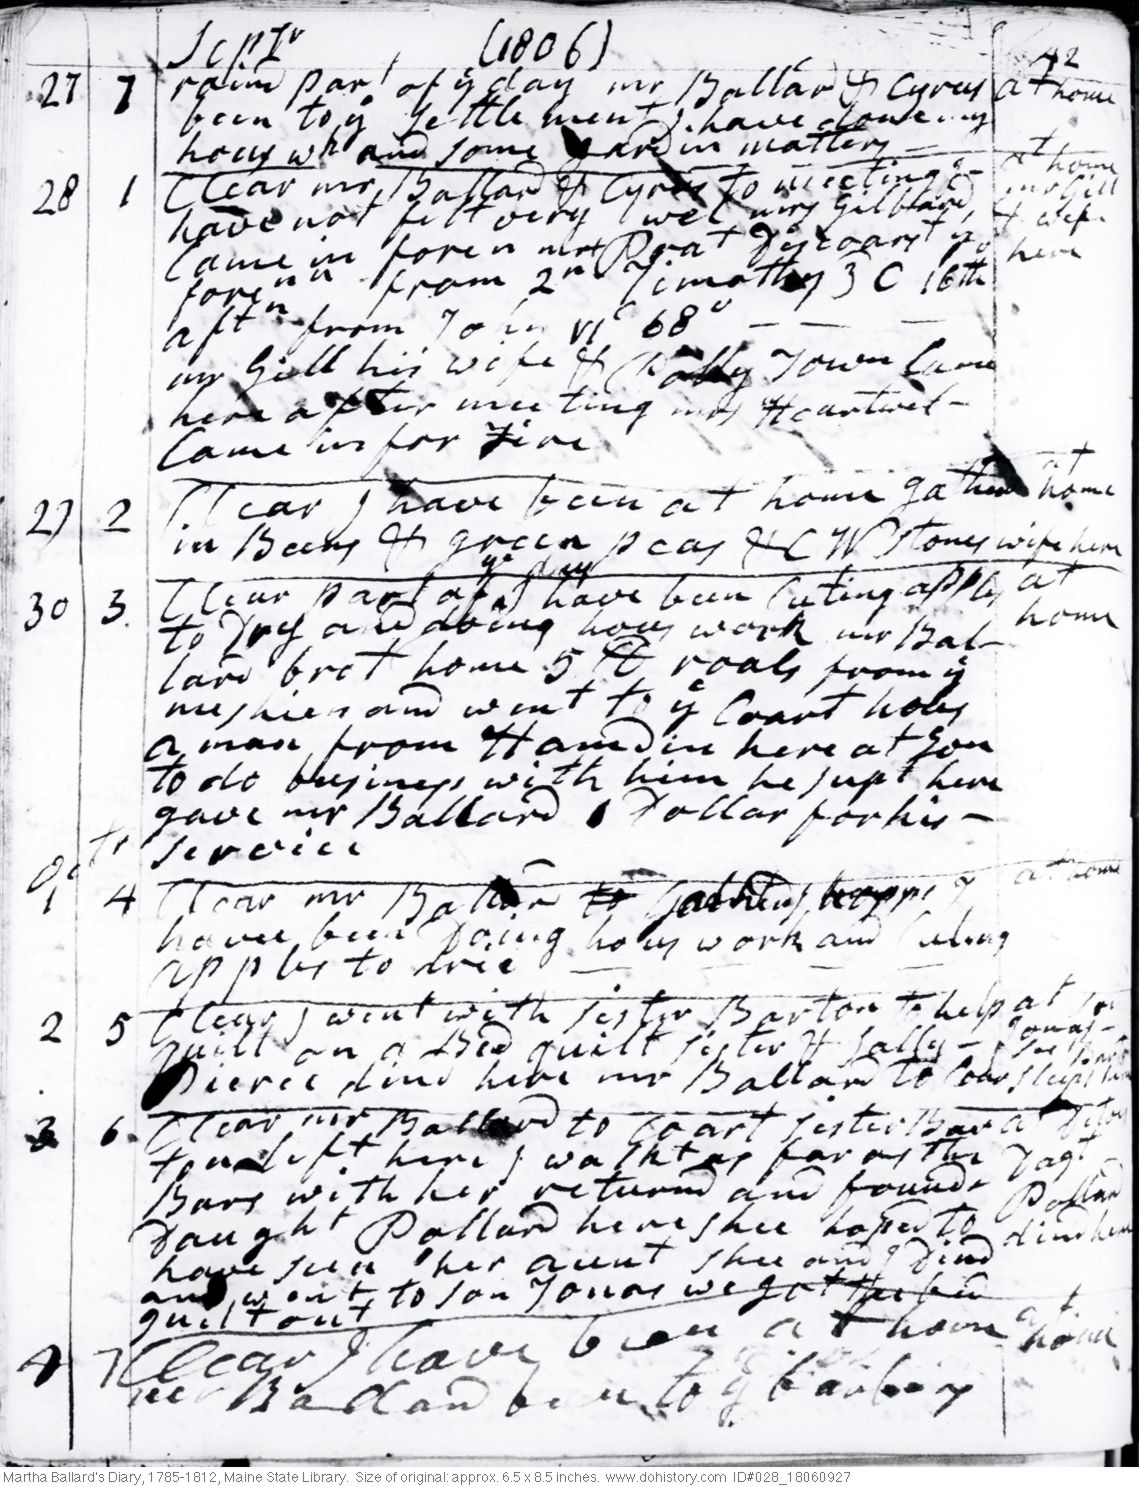 Sept^r (1806) 42
27 7 raind part of y^e day mr Ballard & Cyrus at home
been to y^e settlement I have done my
hous wk and some gardin matters –
28 1 Clear mr Ballard & Cyrus to meeting I at home
have not felt very well mrs Gilbard mr Gill
Came in foren mr Prat Discoarst y^e & wife
foren^n from 2^n Timothy 3 C 16th here
aft^n from John VI C 68 – – –
mr Gill his wife & Polly Town Came
here after meeting mrs Heartwel –
Came in for Fire
29 2 Clear I have been at home gatherd at home
in Beens & green peas & C W Stones wife here
30 3 Clear part of y^e day I have been Cuting apples at
to Dry and doing hous work mr Bal- home
lard brot home 5 lb roals from y^e
meshien and went to y^e Coart hous
a man from Hamdin here at Son
to do business with him he supt here
gave mr Ballard 1 Dollar for his –
service
Oct^r
1 4 Clear mr Ballard to I at home
have been Doing hous work and Cuting
apples to drie – – – –
2 5 Clear I went with sister Barton to help at son
quilt on a Bed quilt sister & Sally – Jonas –
Pierce dind here mr Ballard to Coart
3 6 Clear mr Ballard to Coart sister Bar at
ton left here I walkt as far as the Dagt
Bars with her returnd and found Pollard
Daught Pollard here shee hoped to dind here
have seen her aunt shee and I Dind
and went to son Jonas we got the bed
quilt out
4 7 Clear I have been at home at home
mr Ballard been to y^e
Martha Ballard's Diary, 1785-1812, Maine State Library. Size of original: approx. 6.5 x 8.5 inches. www.dohistory.com ID#028_18060927